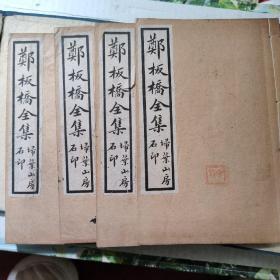 鄭板橋全集
掃葉山房
石印
鄭板橋全集
掃葉山房
石印
鄭板橋全集
掃葉山房
石印
鄭板橋全集
掃葉山房
石印